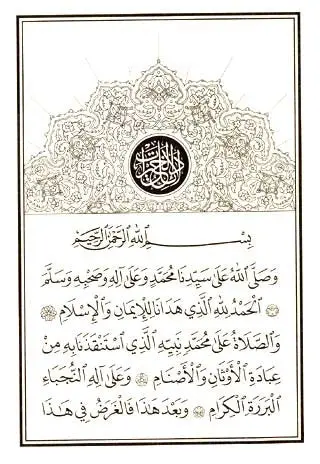 دلائل الخيرات
بِسْمِ اللَّهِ الرَّحْمَنِ الرَّحِيمِ
وَصَلَّى اللهُ عَلَى سَيِّدِنَا مُحَمَّدٍ وَعَلَى آلِهِ وَصَحْبِهِ وَسَلَّمَ
اَلْحَمْدُ لِلهِ الَّذِي هَدَانَا لِلْإِيمَانِ وَالْإِسْلَامِ
وَالصَّلَاةُ عَلَى مُحَمَّدٍ نَبِيِّهِ الَّذِي اسْتَنْقَذَنَا بِهِ مِنْ
عِبَادَةِ الْأَوْثَانِ وَالْأَصْنَامِ وَعَلَى آلِهِ النُّجَبَاءِ
الْبَرَرَةِ الْكِرَامِ وَبَعْدَ هَذَا فَالْغَرَضُ فِي هَذَا